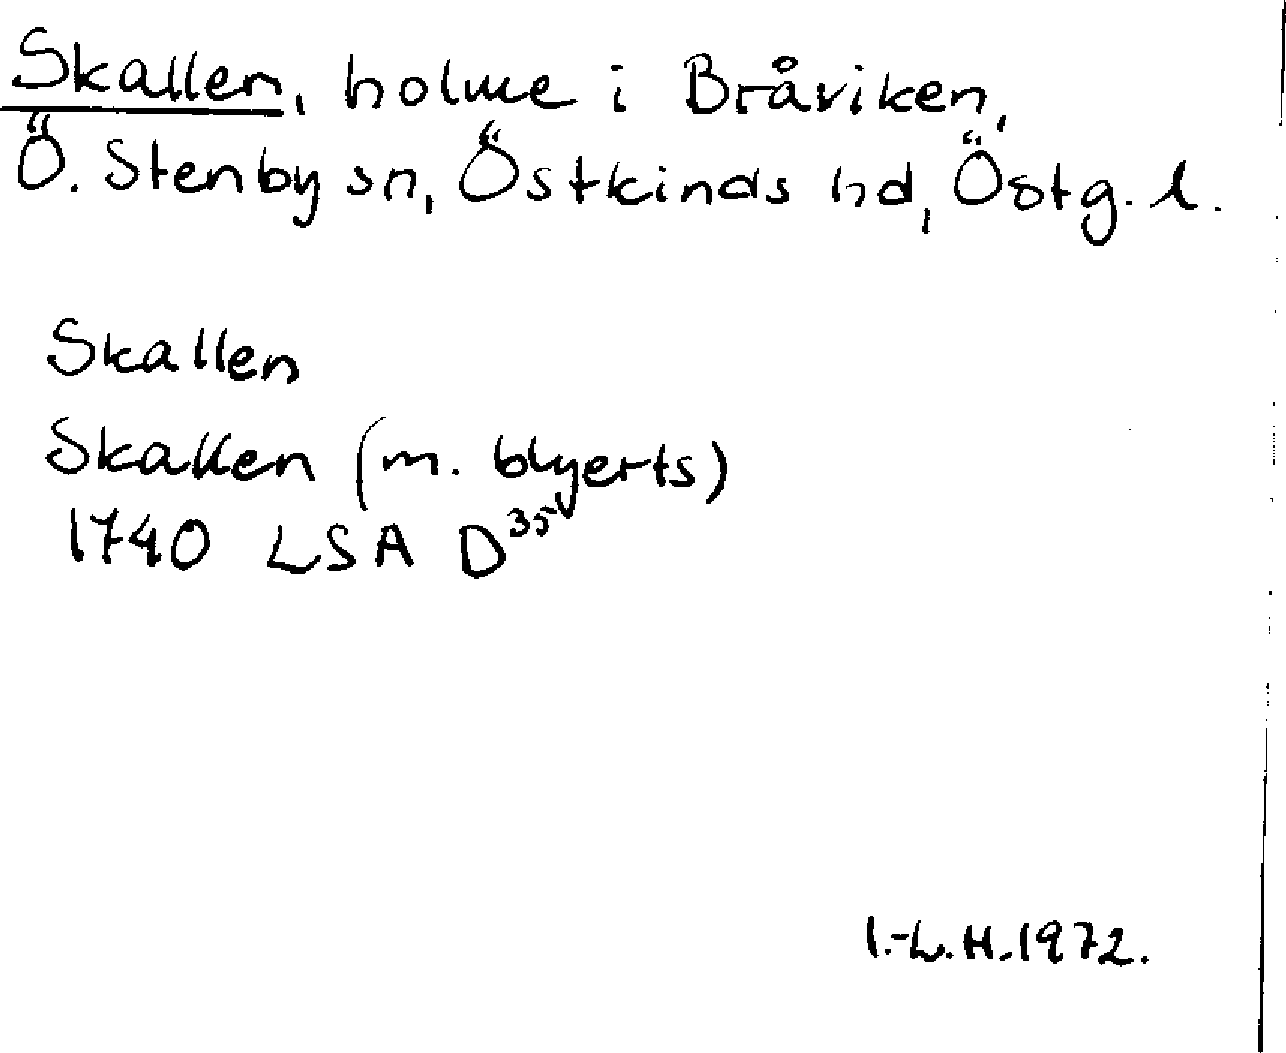 Skallen, holme i Bråviken,
Ö. Stenby sn, Östkinds hd, Östg. l.
Skallen
Skallen (m. blyerts)
1740 LSA D 35
I.-L. H. 1972.